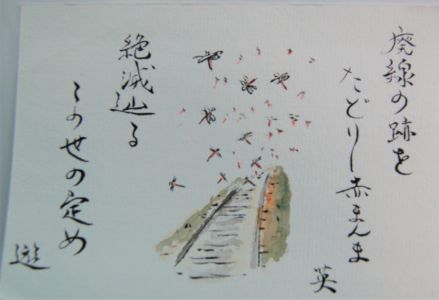 廃線の跡を
たどりし赤まんま
英
絶滅辿る
この世の定め
遊